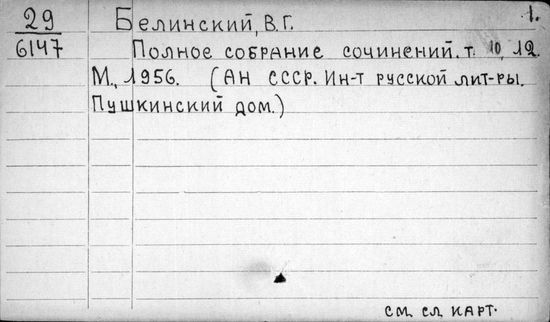 29 Белинский, В.Г. 1.
6147 Полное собрание сочинений. т. 10, 12.
М., 1956. (АН СССР. Ин-т русской лит-ры.
Пушкинский дом.)
см. сл. карт.